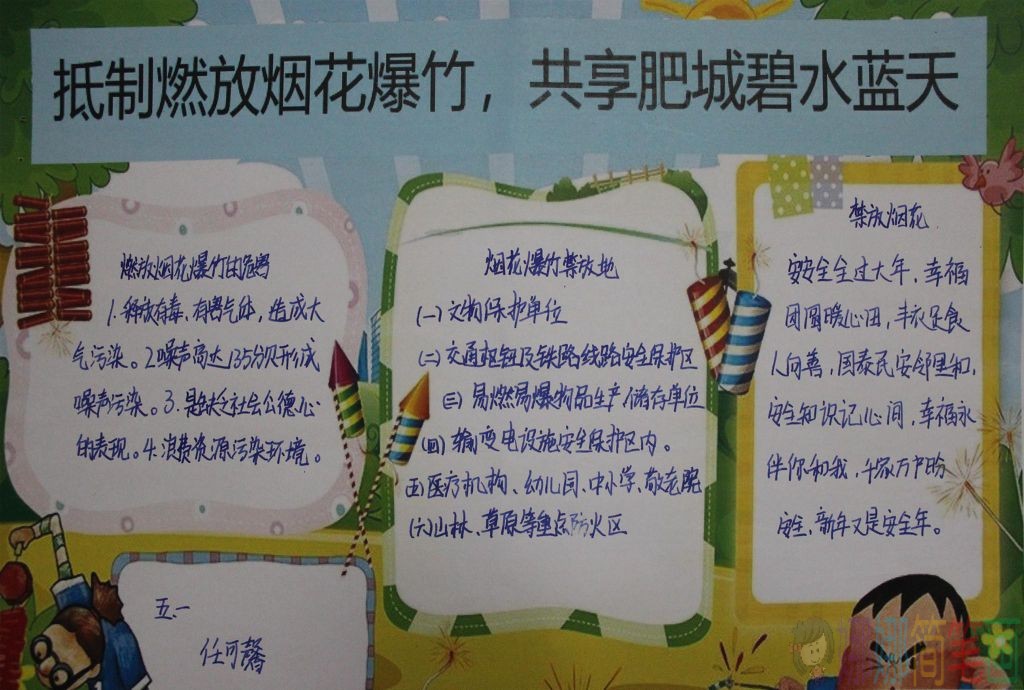 抵制燃放烟花爆竹，共享肥城碧水蓝天
燃放烟花爆竹的危害
1.释放有毒、有害气体，造成大
气污染。2噪声高达135分贝形成
噪声污染。3.是缺乏社会公德心
的表现。4.浪费资源污染环境。
五.一
任可馨
烟花爆竹禁放地
(一)文物保护单位
(二)交通枢纽及铁路线路安全保护区
(三)易燃易爆物品生产、储存单位
(四)输变电设施安全保护区内。
(五)医疗机构、幼儿园、中小学、敬老院
(六)山林、草原等重点防火区
禁放烟花
安安全全过大年，幸福
团圆暖心田，丰衣足食
人向善，国泰民安邻里和，
安全知识记心间，幸福永
伴你和我，千家万户盼
安全，新年又是安全年。
简笔画